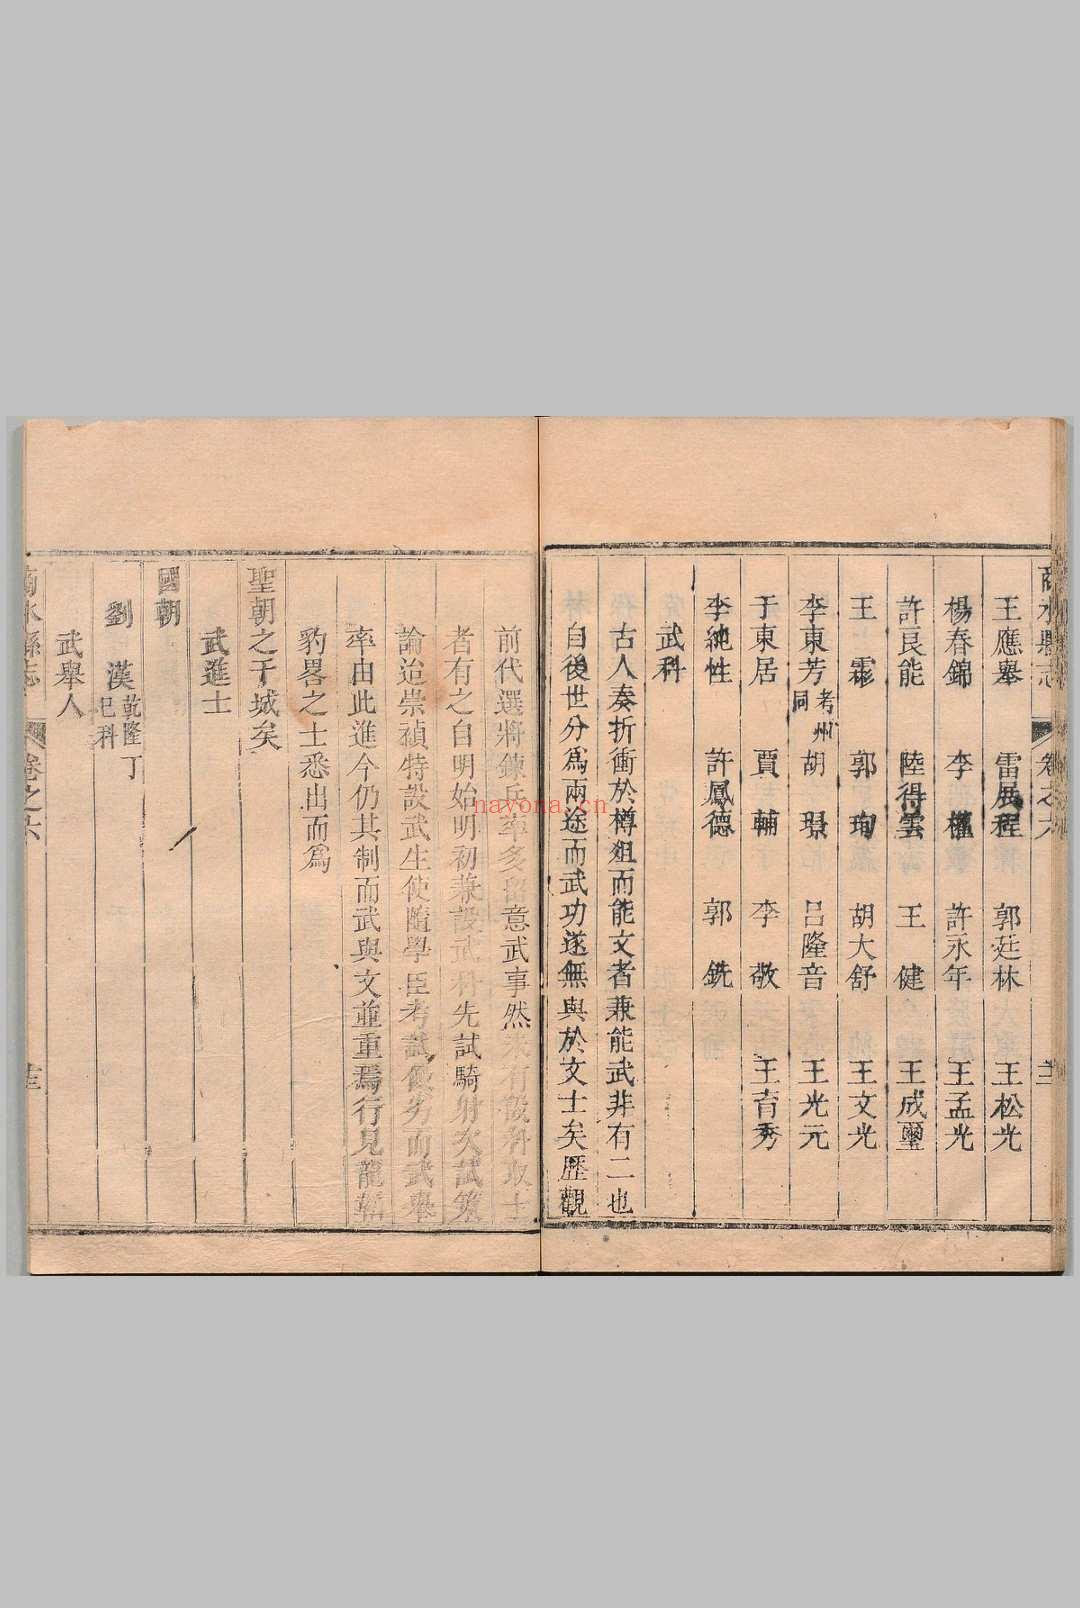 商水縣志 卷之六
王應舉 雷展程 郭廷林 王松光
楊春錦 李 許永年 王孟光
許良能 陸得雲 王健 王成璽
王霦 郭珣 胡大舒 王文光
李東芳 考州同 胡璟 呂隆音 王光元
于東居 賈輔 李敬 王育秀
李純性 許鳳德 郭銑
武科
古人奏折衝於樽俎而能文者兼能武非有二也
自後世分爲兩途而武功遂無與於文士矣歷觀
前代選將鍊兵率多留意武事然未有設科取士
者有之自明始明初兼設武科先試騎射次試策
論迨崇禎特設武生使隨學臣考試優劣而武舉
率由此進今仍其制而武與文並重焉行見龍韜
豹畧之士悉出而爲
聖朝之干城矣
武進士
國朝
劉漢 乾隆丁巳科
武舉人
商水縣志 卷之六
navona.cn